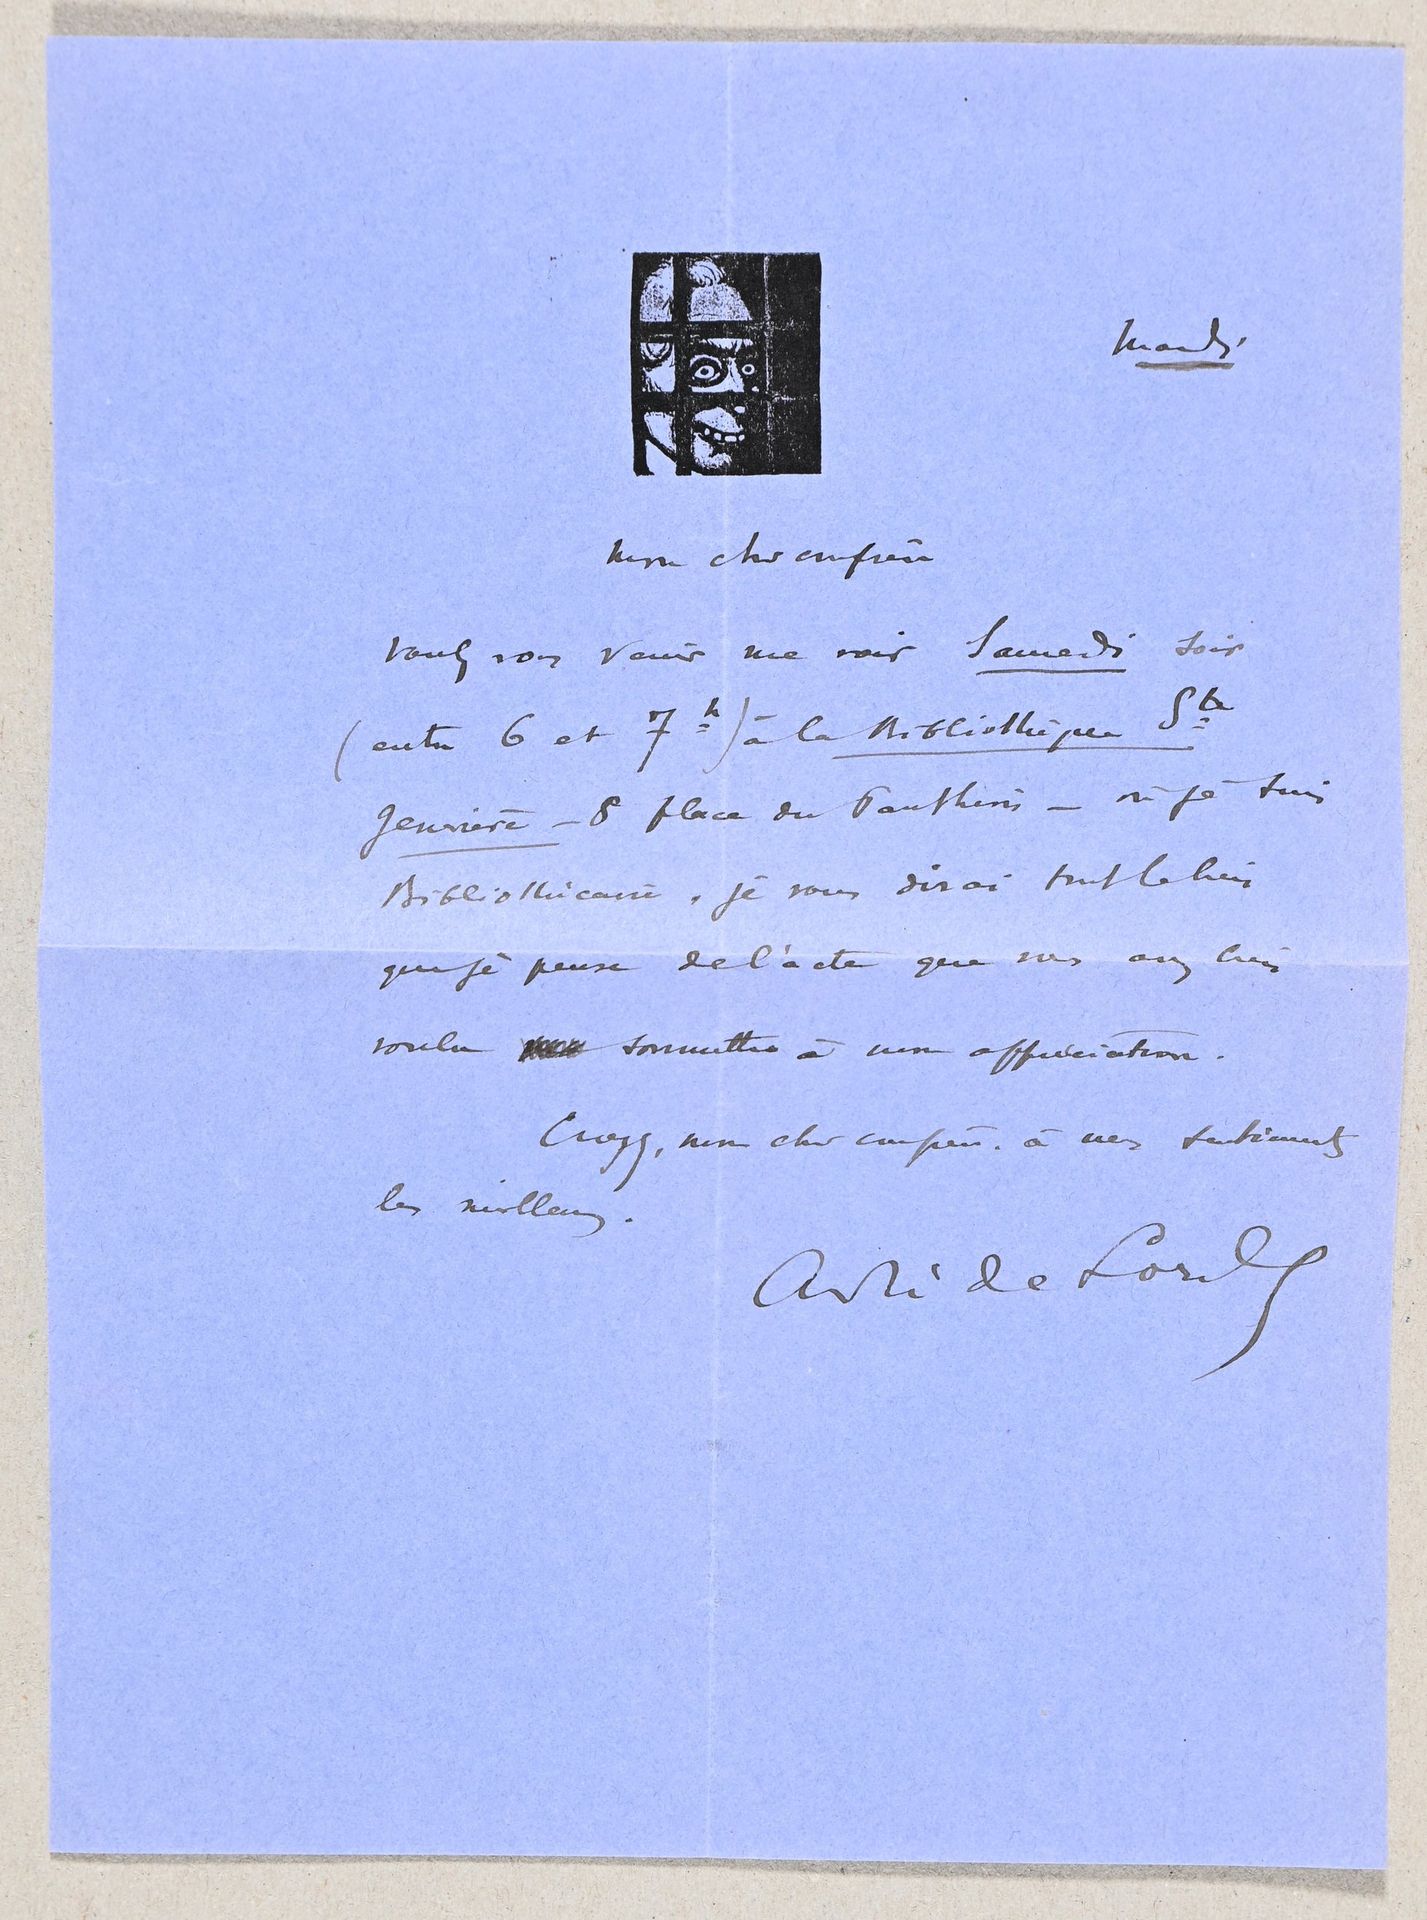 Mardi
Mon cher confrère
Voulez vous venir me voir Samedi soir
(entre 6 et 7 h) à la Bibliothèque Ste
Geneviève – 8 place du Panthéon – où je suis
Bibliothécaire. Je vous dirai tout le bien
que je pense de l'acte que vous avez bien
voulu soumettre à mon appréciation.
Croyez, mon cher confrère, à mes sentiments
les meilleurs.
André de Lorde